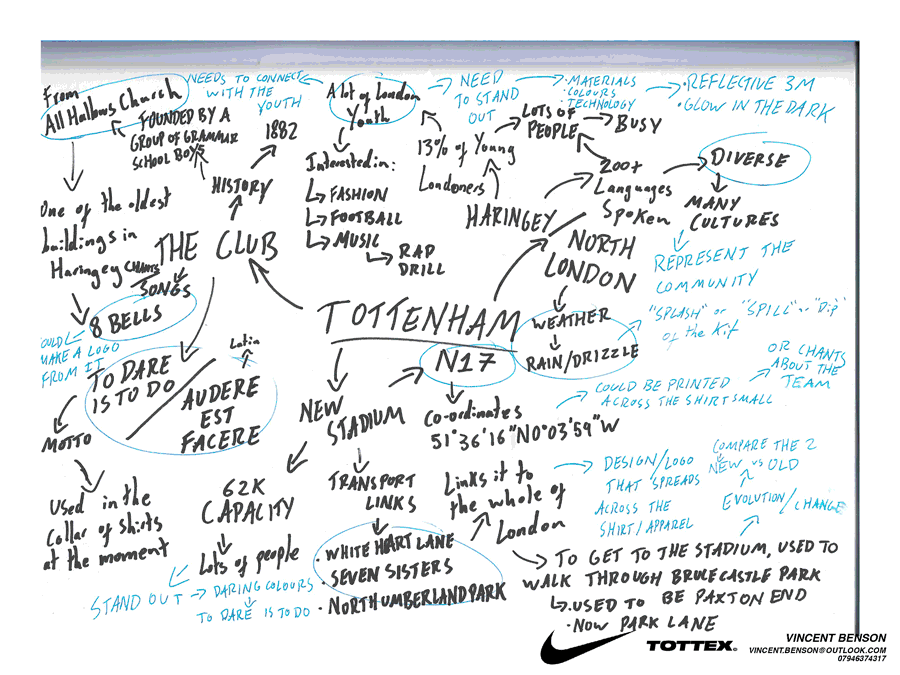 From
All Hallows Church
FOUNDED BY A
GROUP OF GRAMMAR
SCHOOL BOYS
HISTORY
1882
NEEDS TO CONNECT
WITH THE
YOUTH
A lot of London
Youth
Interested in:
FASHION
FOOTBALL
MUSIC
RAP
DRILL
NEED
TO STAND
OUT
· MATERIALS
· COLOURS
TECHNOLOGY
· REFLECTIVE 3M
· GLOW IN THE DARK
13% of Young
Londoners
LOTS OF
PEOPLE
BUSY
HARINGEY
200+
Languages
Spoken
DIVERSE
MANY
CULTURES
REPRESENT THE
COMMUNITY
One of the oldest
buildings in
Haringey
THE CLUB
CHANTS
SONGS
8 BELLS
COULD
MAKE A LOGO
FROM IT
TO DARE
IS TO DO
Latin
AUDERE
EST
FACERE
MOTTO
Used in the
collar of shirts
at the moment
TOTTENHAM
N17
NORTH
LONDON
WEATHER
RAIN/DRIZZLE
"SPLASH" or "SPILL" or "Dip"
of the Kit
NEW
STADIUM
CO-ordinates
51°36'16"N0°03'59"W
COULD BE PRINTED
ACROSS THE SHIRT SMALL
OR CHANTS
ABOUT THE
TEAM
62K
CAPACITY
Lots of people
STAND OUT
DARING COLOURS
TO DARE IS TO DO
TRANSPORT
LINKS
· WHITE HART LANE
· SEVEN SISTERS
· NORTHUMBERLAND PARK
Links it to
the whole of
London
DESIGN/LOGO
THAT SPREADS
ACROSS THE
SHIRT/APPAREL
COMPARE THE 2
NEW vs OLD
EVOLUTION/CHANGE
TO GET TO THE STADIUM, USED TO
WALK THROUGH BRUCECASTLE PARK
· USED TO BE PAXTON END
· NOW PARK LANE
TOTTEX®
VINCENT BENSON
VINCENT.BENSON@OUTLOOK.COM
07946374317